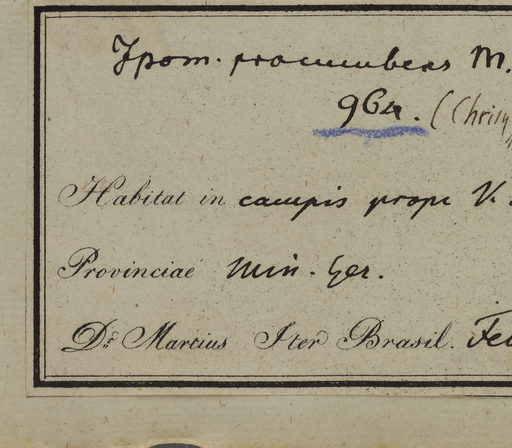 Ipom. procumbens M.
964. (Chrisy
Habitat in campis prope V.
Provinciae Min. Ger.
Dr. Martius Iter Brasil. Feb